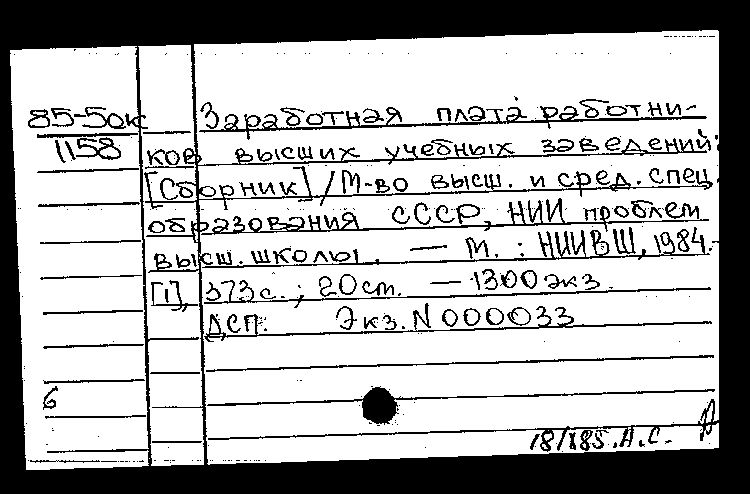 85-5ок Заработная плата работни-
1158 ков высших учебных заведений:
[Сборник] / М-во высш. и сред. спец.
образования СССР, НИИ проблем
высш. школы. — М. : НИИВШ, 1984.-
[1], 373 с. ; 20 см. — 1300 экз.
ДСП. Экз. N 000033
6
18/185. А.С.